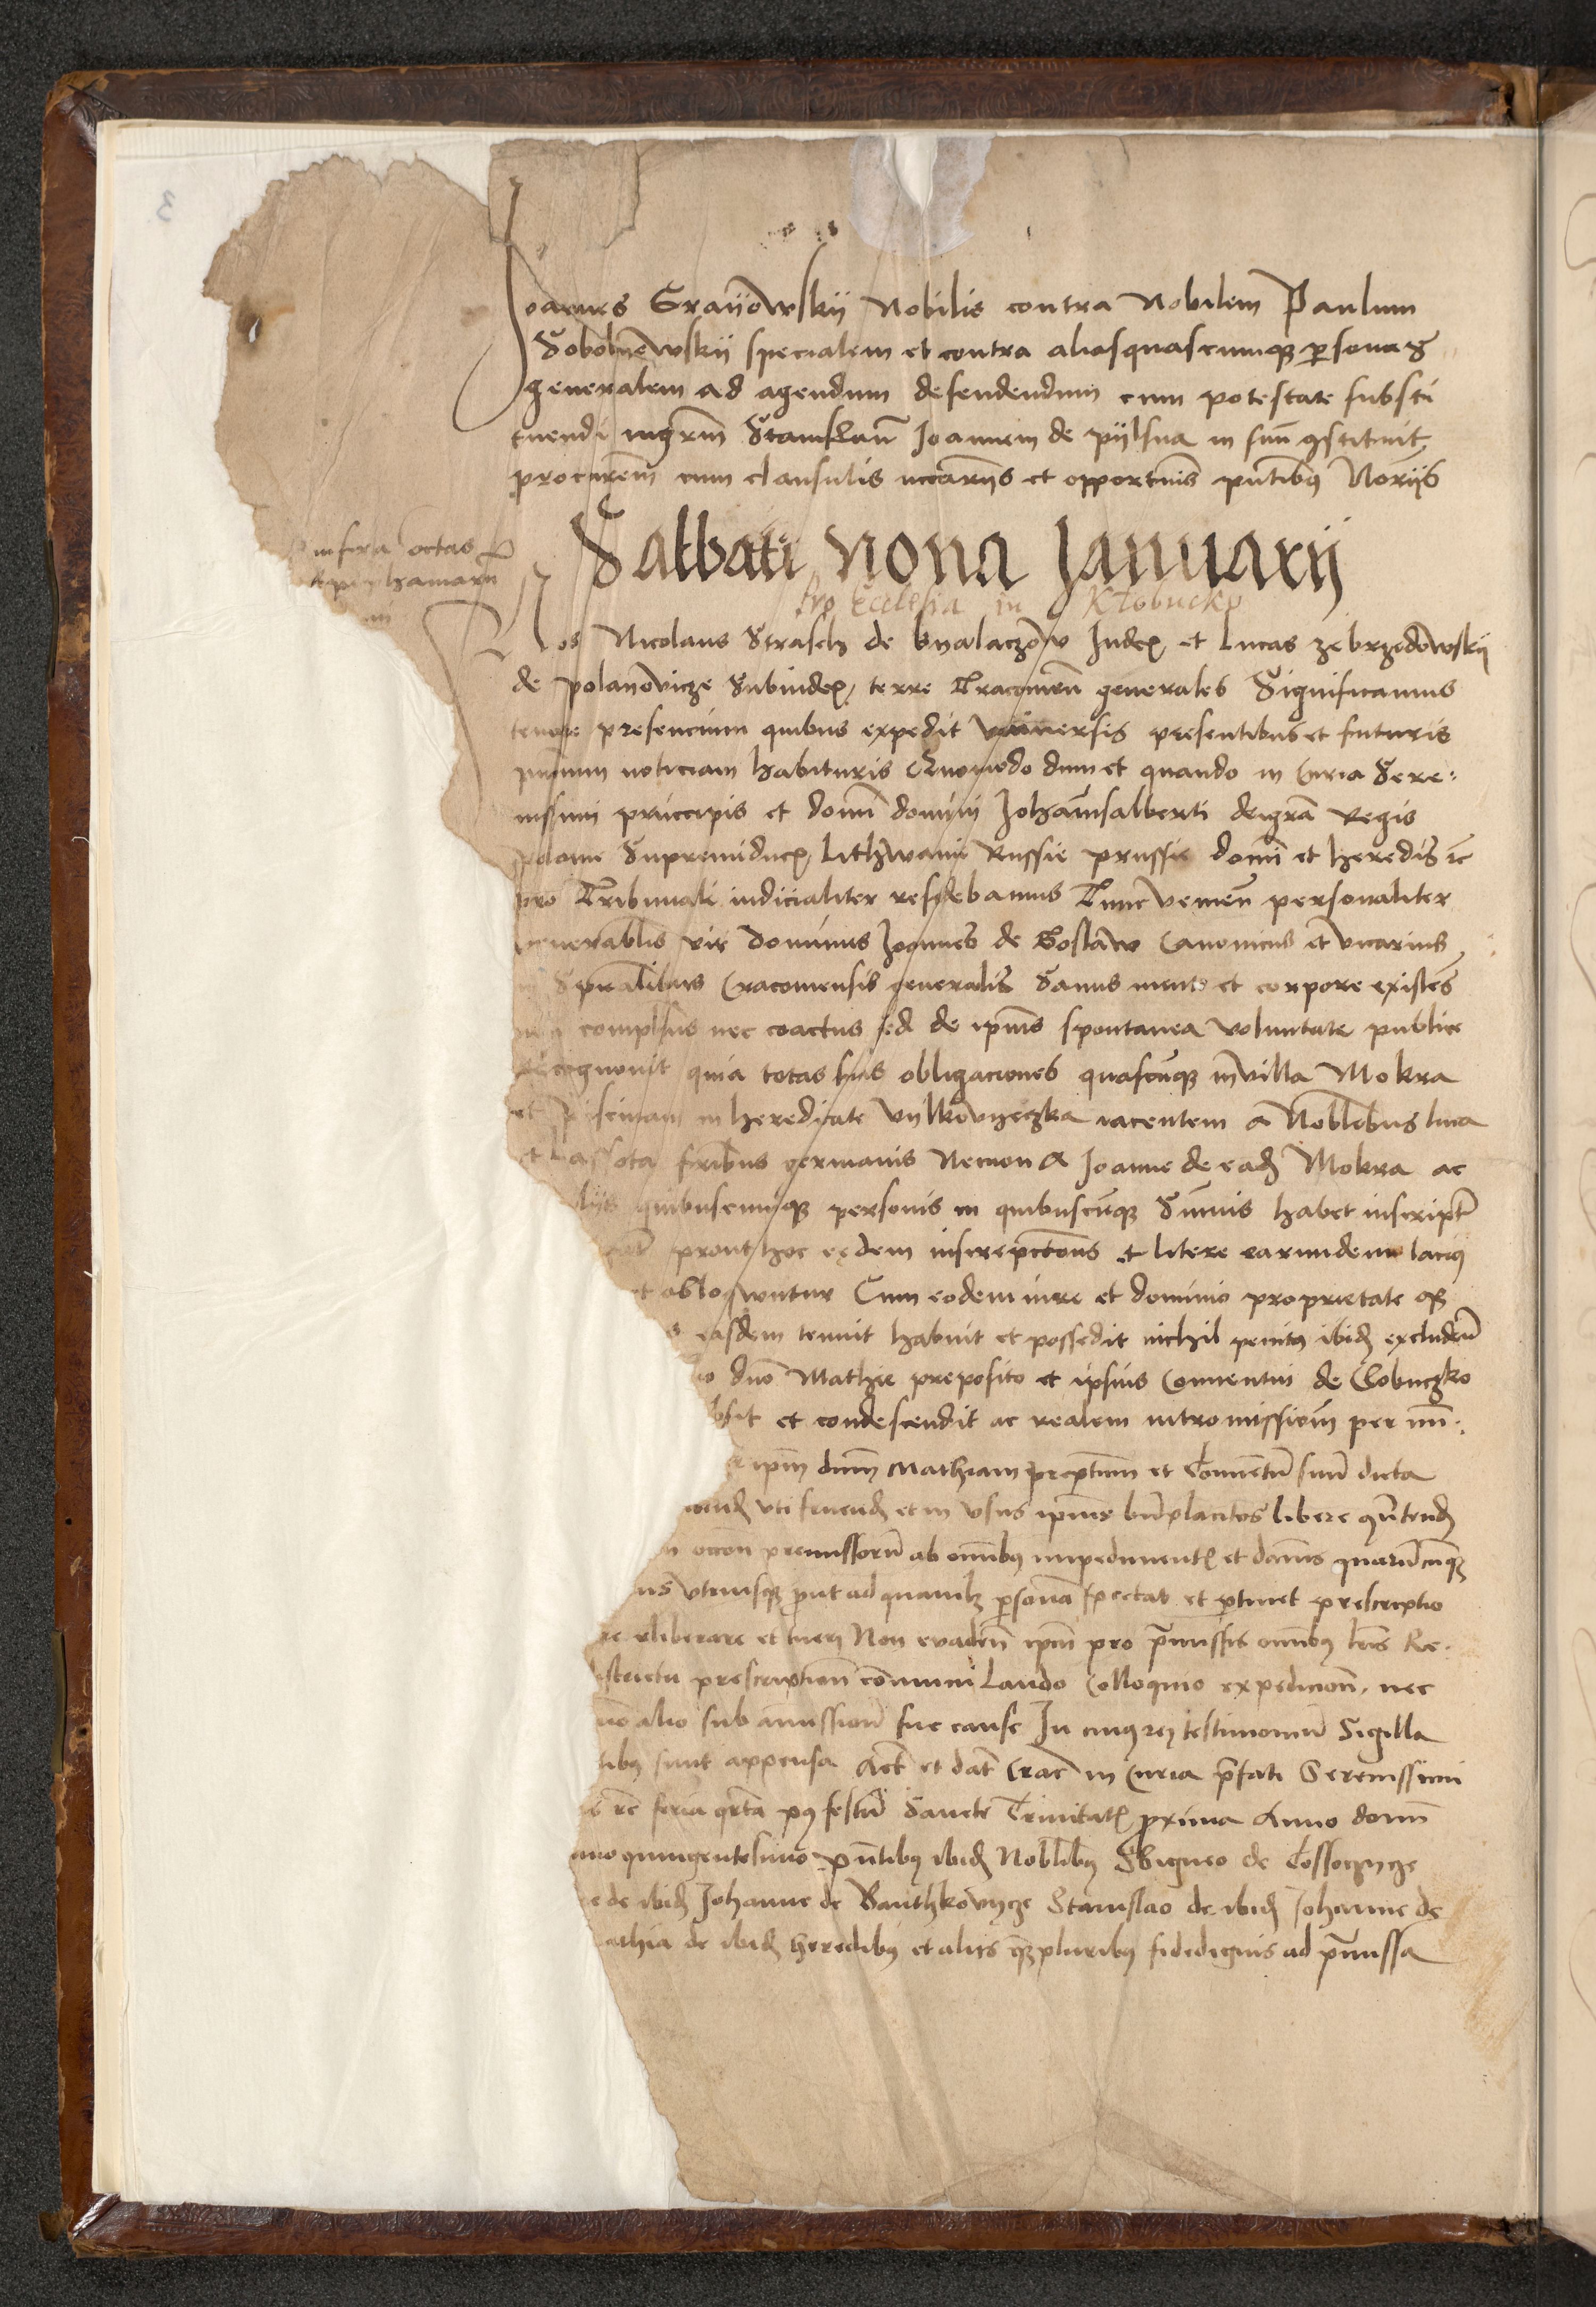 Joannes Graijowskij Nobilis contra Nobilem Paulum
Sobolnewskij specialem et contra alias quascumque personas
generalem ad agendum defendendum cum potestate substi
tuendi mgrm Stanislaū Joannem de pijlsna in suū gstituit
procurem cum clausulis nccariis et opportunis pntibus Noriis
infra octas
Epiphaniarū
Sabbati nona Januarij
pro Ecclesia in Kłobucko
Nos Nicolaus Strasch de byalaczow Judex et Lucas zebrzedowskij
de polanovicze Subiudex terre Cracovieñ generales Significamus
tenore presencium quibus expedit universis presentibus et futuris
noticiam habituris Quomodo dum et quando in Curia Sere-
nissimi principis et domī domini Johānisalberti deigrā Regis
polonie Supremiducis lithwanie Russie prussie domī et heredis ꝛc
pro Tribunali iudicialiter residebamus Tunc venieñ personaliter
venerabilis vir dominus Joannes de Goslaw Canonicus et vicarius
Spūalibus Cracoviensis generalis Sanus mente et corpore existēs
compulsus nec coactus sed de ipius spontanea voluntate publice
Recognovit quia totas suas obligaciones quascūque in villa Mokra
et piscinam in hereditate vylkovyeczka iacentem a Noblibus luca
et Lassota fribus germanis Necnon a Joanne de eadē Mokra ac
aliis quibuscumque personis in quibuscūque Sumīs habet inscript
prout hoc eedem inscrepctiones et litere earundem lacius
obloqwntur Cum eodem iure et dominio proprietate que
easdem tenuit habuit et possedit nichil penitus ibidē excludeñ
dno Mathie preposito et ipsius Conventui de Clobuczko
et condescendit ac realem intromissionem per mi-
ipm dnm Mathiam preptum et Conventū suū dicta
uti fruendū et in usus ipius bnplacitos libere guertendū
premissorū ab omnibus impedimentis et damnis quarūcūque
utriusque put ad quamlz psonā spectat et ptinet prescriptio
eliberare et tueri Non evadeñ ipm pro pmissis omībus trīs Re-
prescriptioni communi Laudo Colloquio expedicioni nec
alio sub amissione sue cause In cuius rei testimoniū Sigilla
sunt appensa Act et dat Crac in Curia pfati Serenissimi
feria qrta post festū Sancte Trinitatis proxima Anno domī
quingentesimo pntibus ibidē Noblibus Sbigneo de Cossoczycze
de ibidē Johanne de Banthkovycze Stanislao de ibidē Johanne de
de ibidē heredibus et aliis quampluribus fidedignis ad pmissa